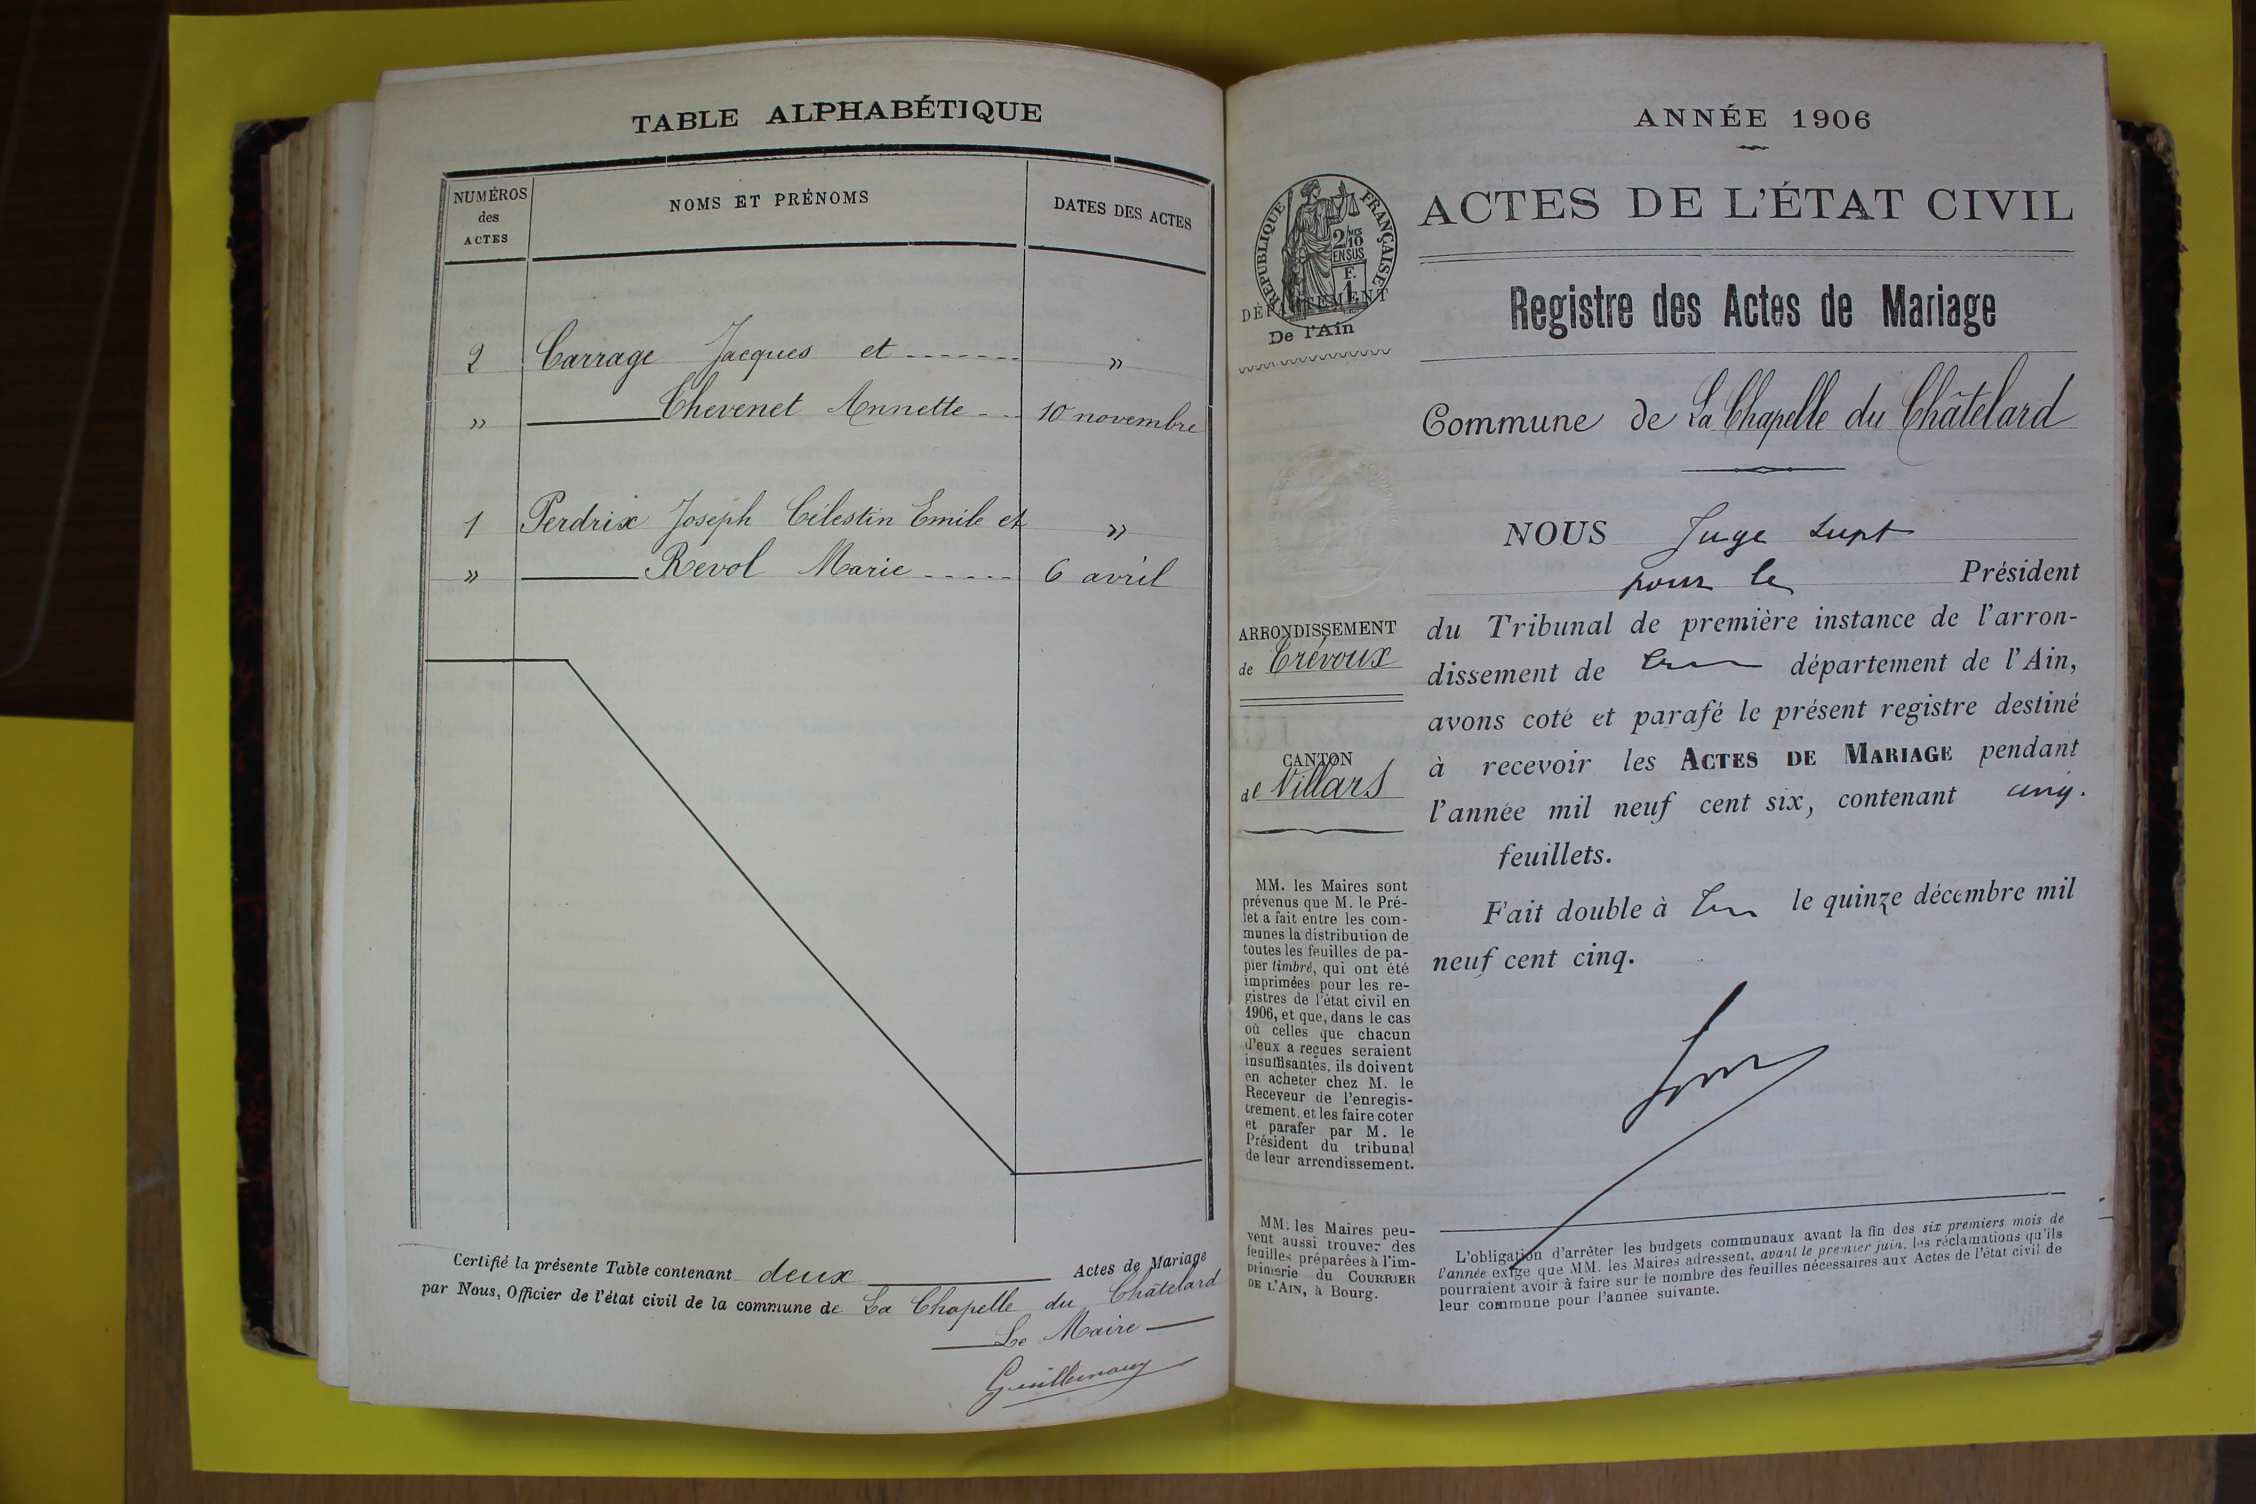 TABLE ALPHABÉTIQUE
NUMÉROS
des
ACTES
NOMS ET PRÉNOMS
DATES DES ACTES
2 Carrage Jacques et ------- »
» Chevenet Annette --- 10 novembre
1 Perdrix Joseph Célestin Emile et »
» Revol Marie ----- 6 avril
Certifié la présente Table contenant deux Actes de Mariage
par Nous, Officier de l'état civil de la commune de La Chapelle du Châtelard
Le Maire
ANNÉE 1906
RÉPUBLIQUE FRANÇAISE
2/10 EN SUS
F.
1
DÉPARTEMENT
De l'Ain
ARRONDISSEMENT
de Trévoux
CANTON
de Villars
MM. les Maires sont
prévenus que M. le Pré-
fet a fait entre les com-
munes la distribution de
toutes les feuilles de pa-
pier timbré, qui ont été
imprimées pour les re-
gistres de l'état civil en
1906, et que, dans le cas
où celles que chacun
d'eux a reçues seraient
insuffisantes, ils doivent
en acheter chez M. le
Receveur de l'enregis-
trement, et les faire coter
et parafer par M. le
Président du tribunal
de leur arrondissement.
MM. les Maires peu-
vent aussi trouver des
feuilles préparées à l'im-
primerie du COURRIER
DE L'AIN, à Bourg.
ACTES DE L'ÉTAT CIVIL
Registre des Actes de Mariage
Commune de La Chapelle du Châtelard
NOUS Juge supt
pour le Président
du Tribunal de première instance de l'arron-
dissement de département de l'Ain,
avons coté et parafé le présent registre destiné
à recevoir les ACTES DE MARIAGE pendant
l'année mil neuf cent six, contenant cinq.
feuillets.
Fait double à le quinze décembre mil
neuf cent cinq.
L'obligation d'arrêter les budgets communaux avant la fin des six premiers mois de
l'année exige que MM. les Maires adressent, avant le premier juin, les réclamations qu'ils
pourraient avoir à faire sur le nombre des feuilles nécessaires aux Actes de l'état civil de
leur commune pour l'année suivante.